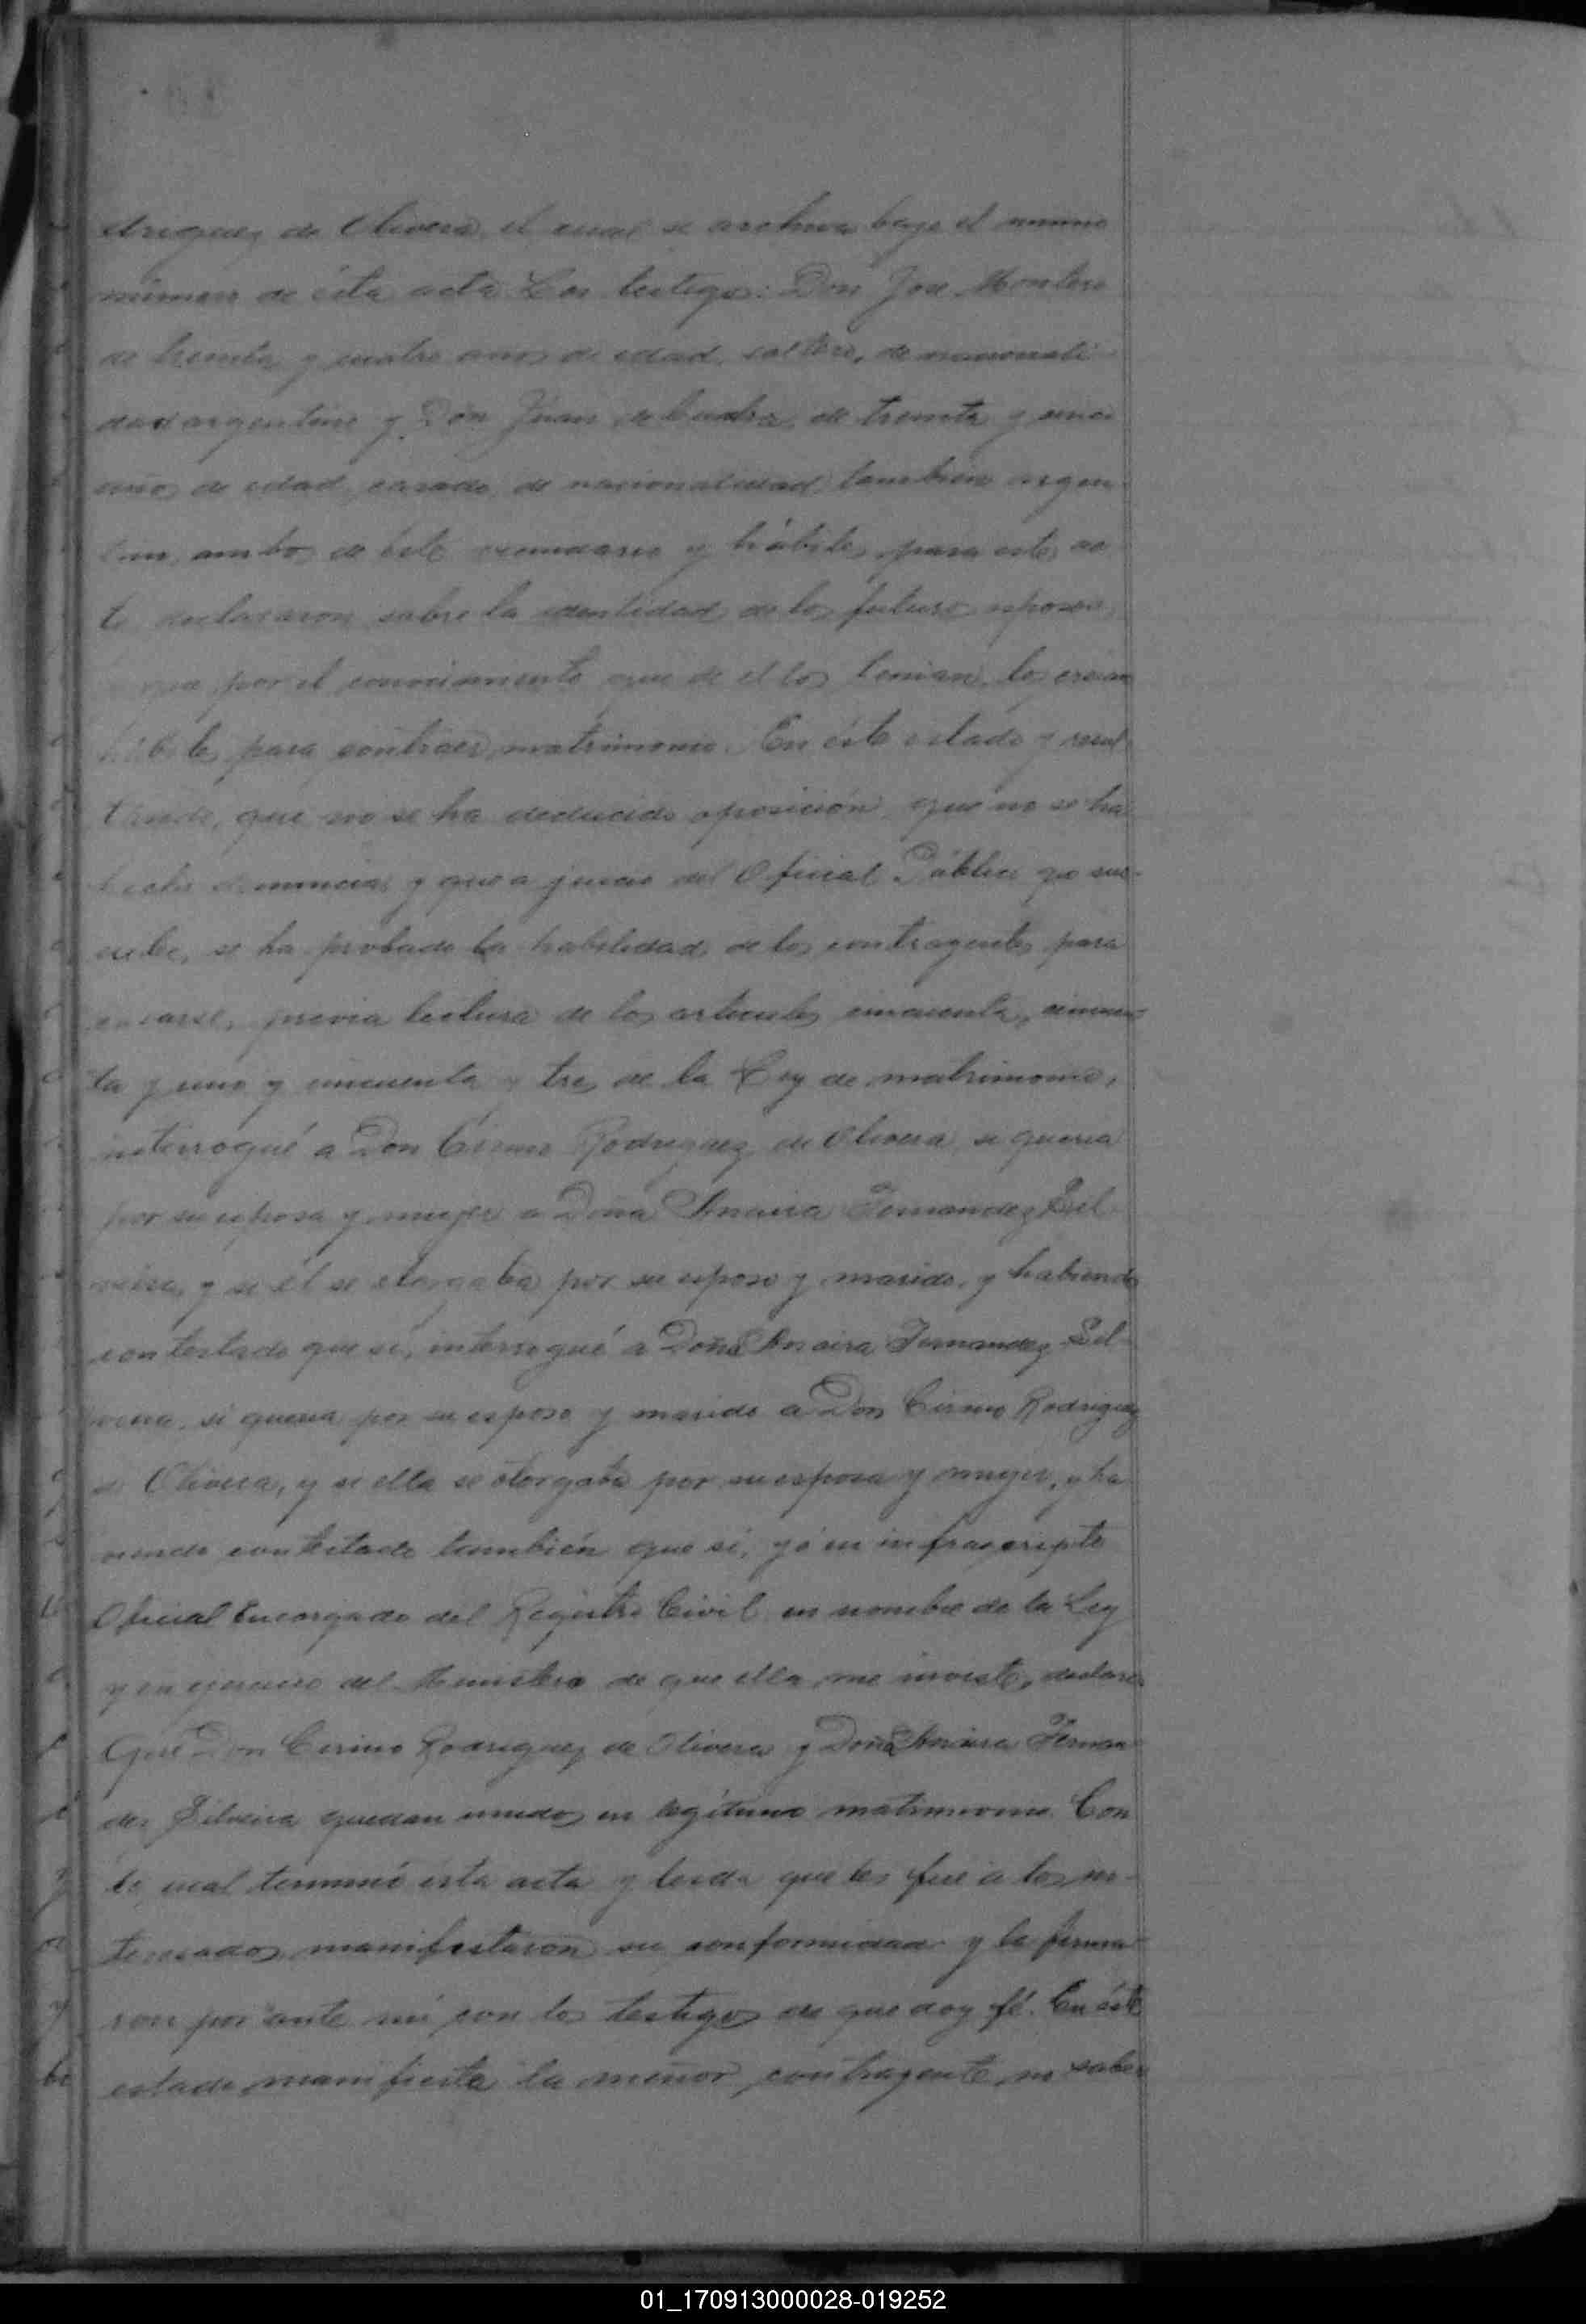 driguez de Olivera, el cual se archiva bajo el mismo
número de ésta acta Los testigos: Don José Montero
de treinta y cuatro años de edad, soltero, de nacionali
dad argentino y Don Juan de treinta y cinco
años de edad, casado, de nacionalidad tambien argen
tino, ambos de éste vecindario y hábiles para este ac
to declararon sobre la identidad de los futuros esposos,
que por el conocimiento que de ellos tenian, los creian
hábiles para contraer matrimonio. En éste estado y resul
tando, que no se ha deducido oposición, que no se ha
hecho denuncia y que a juicio del Oficial Público qe sus-
cribe, se ha probado la habilidad de los contrayentes para
casarse, previa lectura de los articulos cincuenta, cincuen
ta y uno y cincuenta y tres de la Ley de matrimonio,
interrogué a Don Cirino Rodriguez de Olivera si queria
por su esposa y mujer a Doña Fernandez Sil
veira, y si él se otorgaba por su esposo y marido, y habiendo
contestado que sí, interrogué a Doña Fernandez Sil
veira, si queria por su esposo y marido a Don Cirino Rodriguez
de Olivera, y si ella se otorgaba por su esposa y mujer, y ha
biendo contestado también que si, yó el infrascripto
Oficial Encargado del Registro Civil en nombre de la Ley
y en ejercicio del Ministerio de que ella me inviste, declaro
Que Don Cirino Rodriguez de Olivera y Doña Fernan
dez Silveira quedan unidos en legítimo matrimonio. Con
lo cual terminó esta acta y leida que les fué a los in-
teresados manifestaron su conformidad y la firma
ron por ante mí con los testigos de que doy fé. En éste
estado manifiesta la menor contrayente no saber
01_170913000028-019252